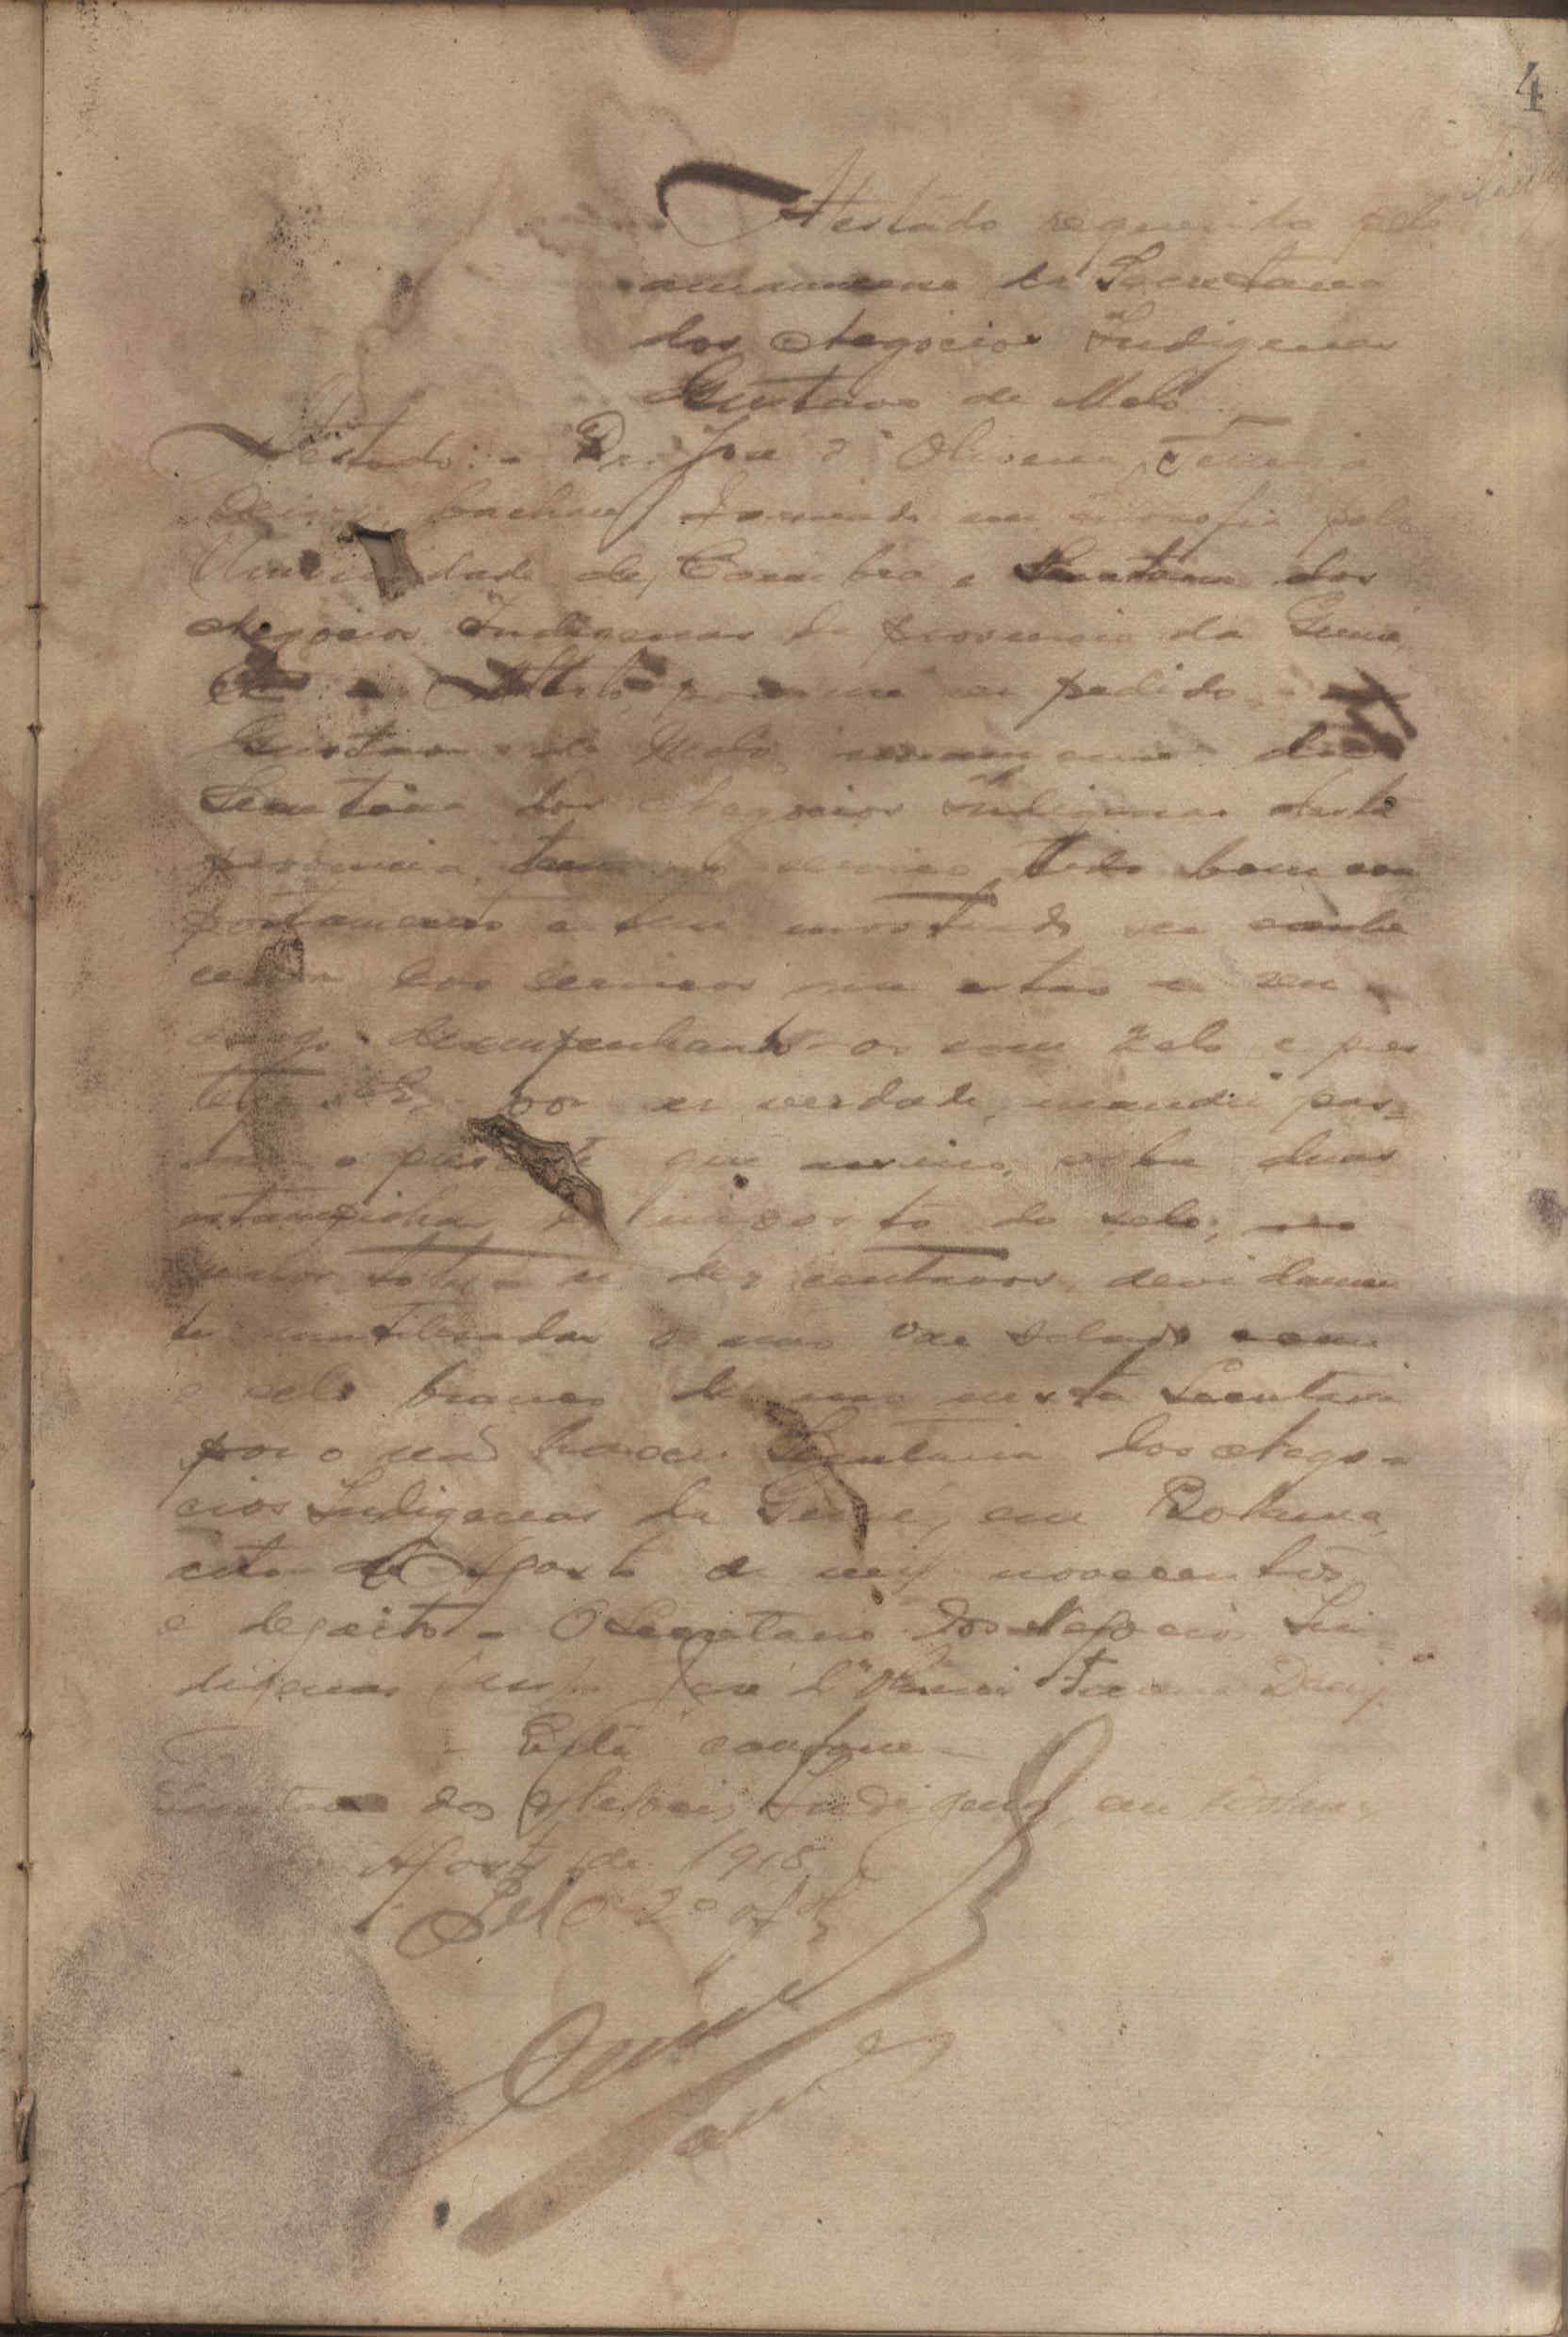 4
Atestado requerido pelo
amanuense da Secretaria
dos Negocios Indigenas
Gustavo de Melo
Atestado: - Dr. José d'Oliveira Ferreira
Diniz, bacharel formado em filosofia pela
Universidade de Coimbra e Secretario dos
Negocios Indigenas da provincia da Guiné,
Atesto por me ser pedido
Gustavo de Melo, amanuense da
Secretaria dos Negocios Indigenas desta
provincia, tem tido bom com
portamento e tem mostrado ser conhe
cedor dos serviços que estão a seu
cargo desempenhando-os com zelo e
E por ser verdade, mandei pas=
sar o presente que assino, sobre duas
estampilhas do imposto do selo, no
valor total de dez centavos, devidamen
te inutilisadas e não vae selado com
o selo branco de uso nesta Secretaria
por o não haver. Secretaria dos Nego-
cios Indigenas da Guiné, em Bolama,
de Agosto de mil novecentos
e dezoito - O Secretario dos Negocios In=
digenas José d'Oliveira Ferreira Diniz
- Está conforme -
Secretaria dos Negocios Indigenas, em Bolama,
Agosto de 1918
Pelo 2º